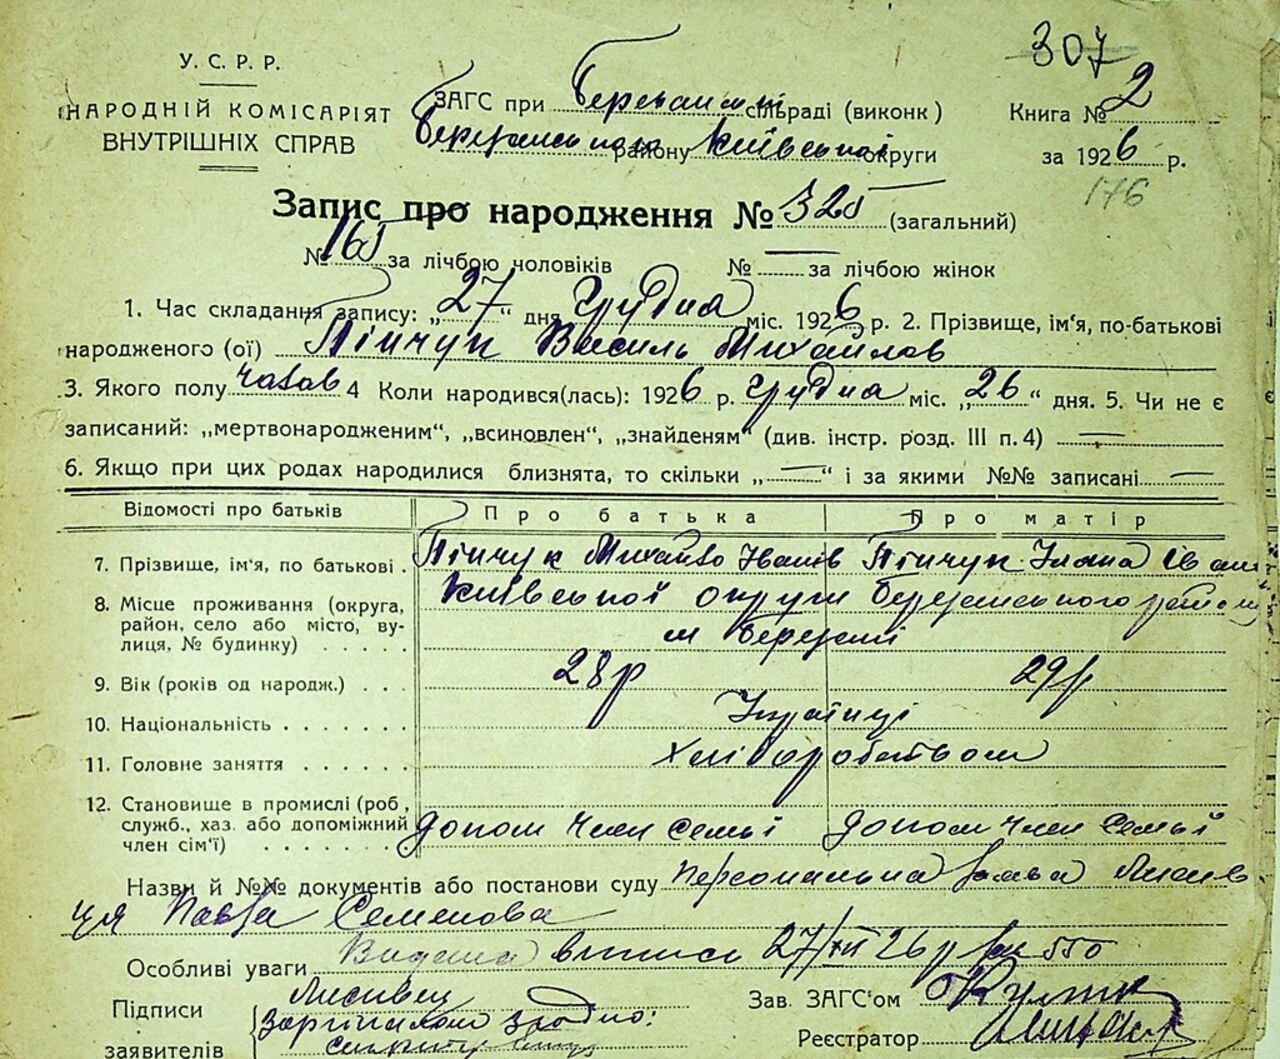 307
У. С. Р. Р.
НАРОДНІЙ КОМІСАРІЯТ
ВНУТРІШНІХ СПРАВ
ЗАГС при сільраді (виконк)
району Київської округи
Книга № 2
за 1926 р.
176
Запис про народження № 325 (загальний)
№ 165 за лічбою чоловіків № за лічбою жінок
1. Час складання запису: „27“ дня Грудня міс. 1926 р. 2. Прізвище, ім'я, по-батькові
народженого (ої) Пінчук Василь Михайлов
3. Якого полу чолов 4 Коли народився(лась): 1926 р. грудня міс. „26“ дня. 5. Чи не є
записаний: „мертвонародженим“, „всиновлен“, „знайденям“ (див. інстр. розд. III п. 4) —
6. Якщо при цих родах народилися близнята, то скільки „—“ і за якими №№ записані —
Відомості про батьків Про батька Про матір
7. Прізвище, ім'я, по батькові . Пінчук Михайло Іванів Пінчук Іван
8. Місце проживання (округа, Київської округи Березанського району
район, село або місто, ву- м Березані
лиця, № будинку) . . . . .
9. Вік (років од народж.) . . . 28 р 29 р
10. Національність . . . . . . . Українці
11. Головне заняття . . . . . . хліборобством
12. Становище в промислі (роб.,
служб., хаз. або допоміжний допом член семьї допом член семьї
член сім'ї) . . . . . . .
Назви й №№ документів або постанови суду персональна
Семенова
Особливі уваги Видана випись 27/XII 26 р за 550
Підписи Лисивец
заявителів з оригіналом згодно:
Зав. ЗАГС'ом
Реєстратор